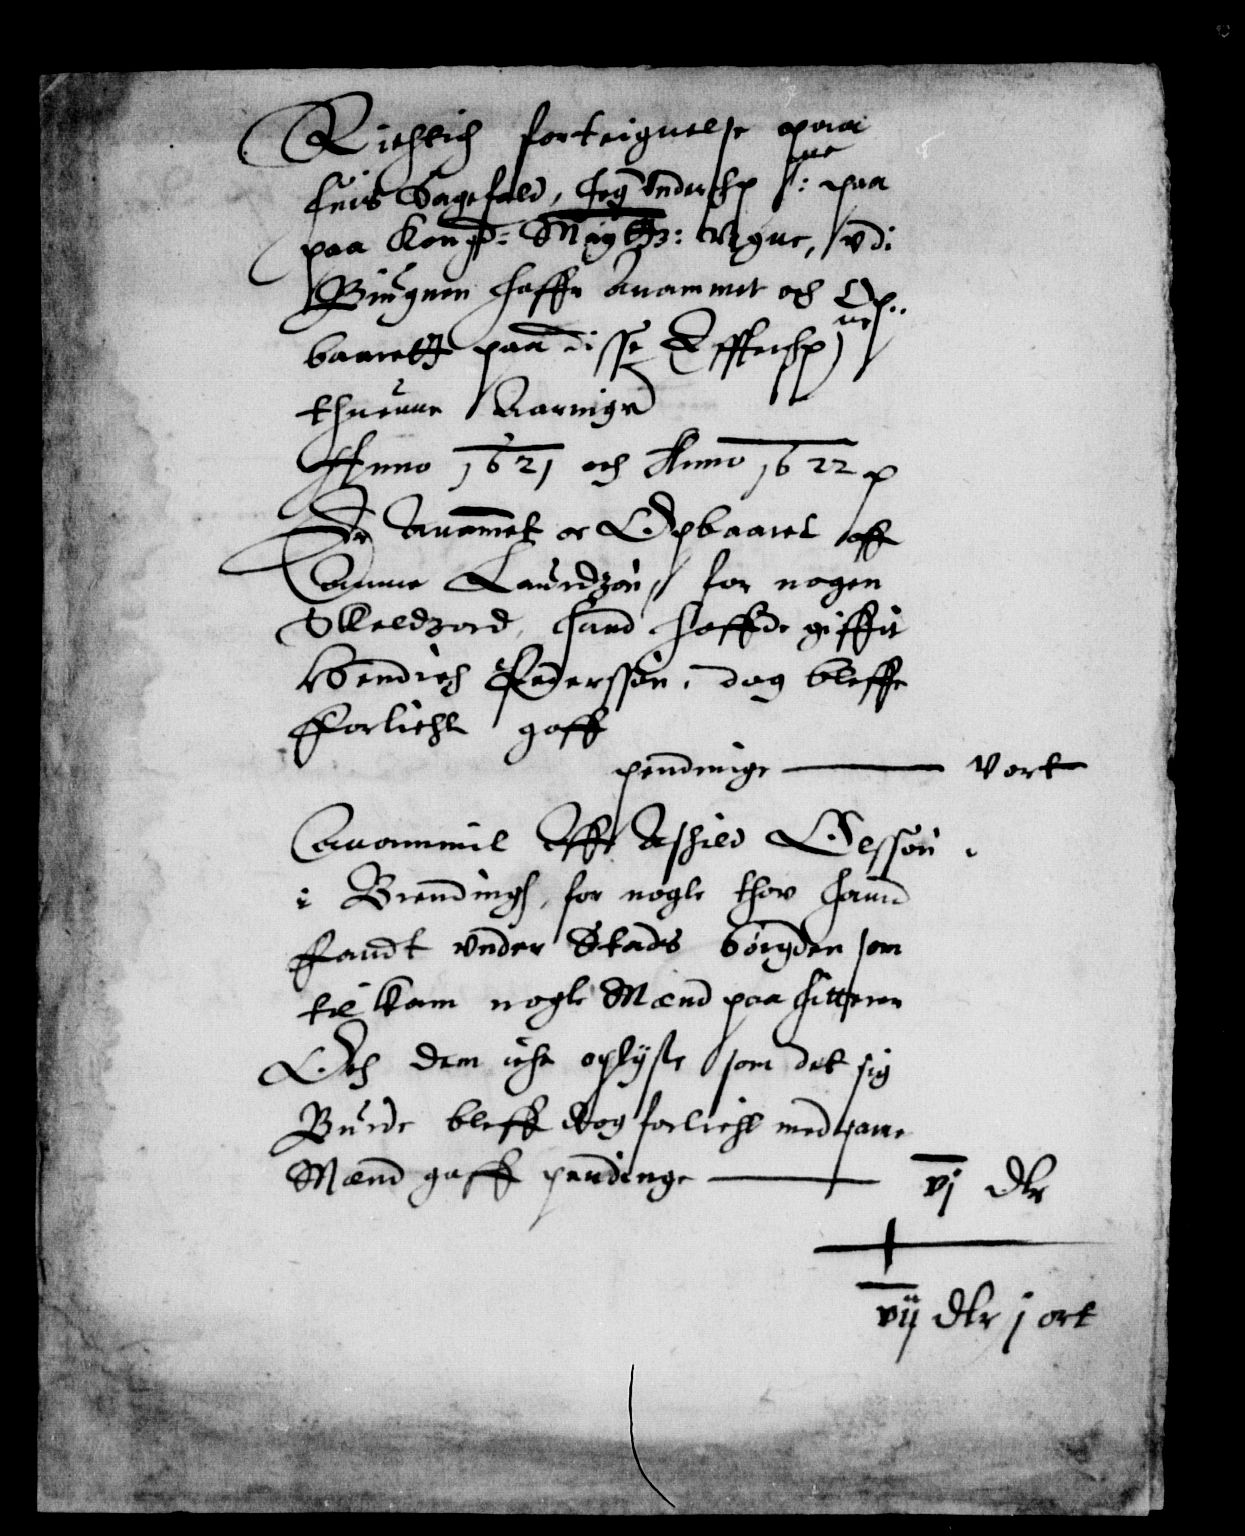 Richtich forteignelse paa
huis Sagefald, Jeg Underschne: paa
paa Kong: Maytz: wegne, vdi
Biugnen haffr Anammet och Op..
baarett paa disse Effterschne
thuenne Aaringer
Anno 1621 och Anno 1622 p
Er Anamet oc Opbaaret aff
Anne Laurdzøn, for nogen
Skeldzord, hand haffde giffit
Hendrich Pederssøn, dog bleffe
fforlicht gaff
pendinge — v ort
Anammit Aff Askild Olssøn
i Brendingh, for nogle thov hannd
ffandt vnder Stads børgden som
til kam nogle Mænd paa hitteren
Och dem iche oplyste som det sig
Burde bleff dog forlicht med
Mænd gaff pendinge — vj dlr
vij dlr j ort